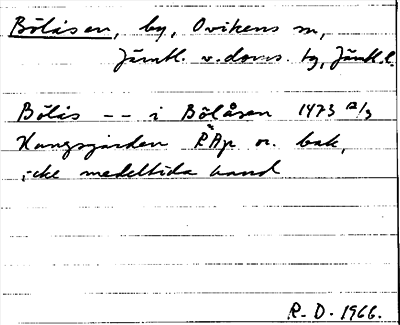 Bölåsen, by, Ovikens sn,
Jämtl. v. doms. tg, Jämtl. l.
Bölås -- i Bölåsen 1473 12/3
Kungsgården RAp or. bak,
icke medeltida hand
R. D. 1966.